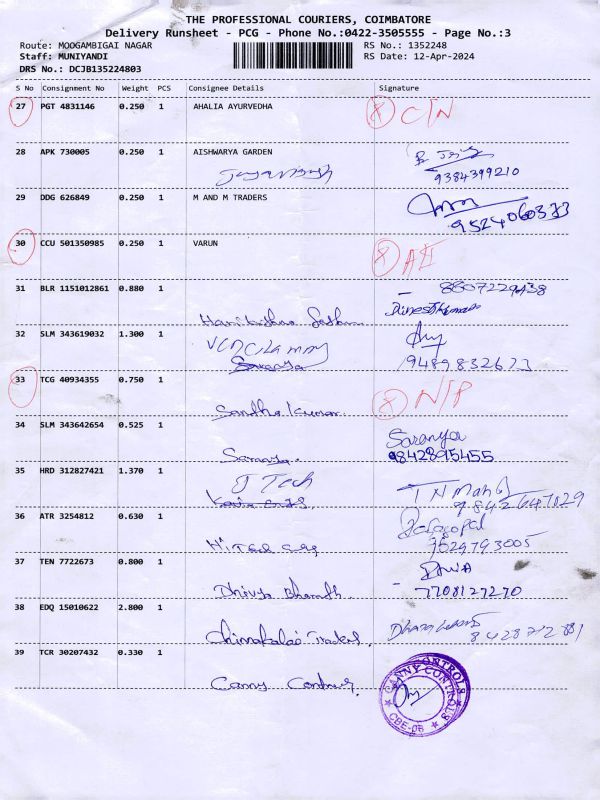 THE PROFESSIONAL COURIERS, COIMBATORE
Delivery Runsheet - PCG - Phone No.:0422-3505555 - Page No.:3
Route: MOOGAMBIGAI NAGAR RS No.: 1352248
Staff: MUNIYANDI RS Date: 12-Apr-2024
DRS No.: DCJB135224803
S No Consignment No Weight PCS Consignee Details Signature
27 PGT 4831146 0.250 1 AHALIA AYURVEDHA
28 APK 730005 0.250 1 AISHWARYA GARDEN
9384399210
29 DDG 626849 0.250 1 M AND M TRADERS
9524060373
30 CCU 501350985 0.250 1 VARUN
31 BLR 1151012861 0.880 1 8807229438
Dineshkumar
32 SLM 343619032 1.300 1
9489832673
33 TCG 40934355 0.750 1
Sandho Kumar
34 SLM 343642654 0.525 1 Saranya
9842895455
Saranya
35 HRD 312827421 1.370 1 J Tech
36 ATR 3254812 0.630 1
9529793005
37 TEN 7722673 0.800 1
Dhivya Bharath 7708127270
38 EDQ 15010622 2.800 1
Chinnakalai Traders
39 TCR 30207432 0.330 1
Canny Controls
CANNY CONTROLS
CBE-06